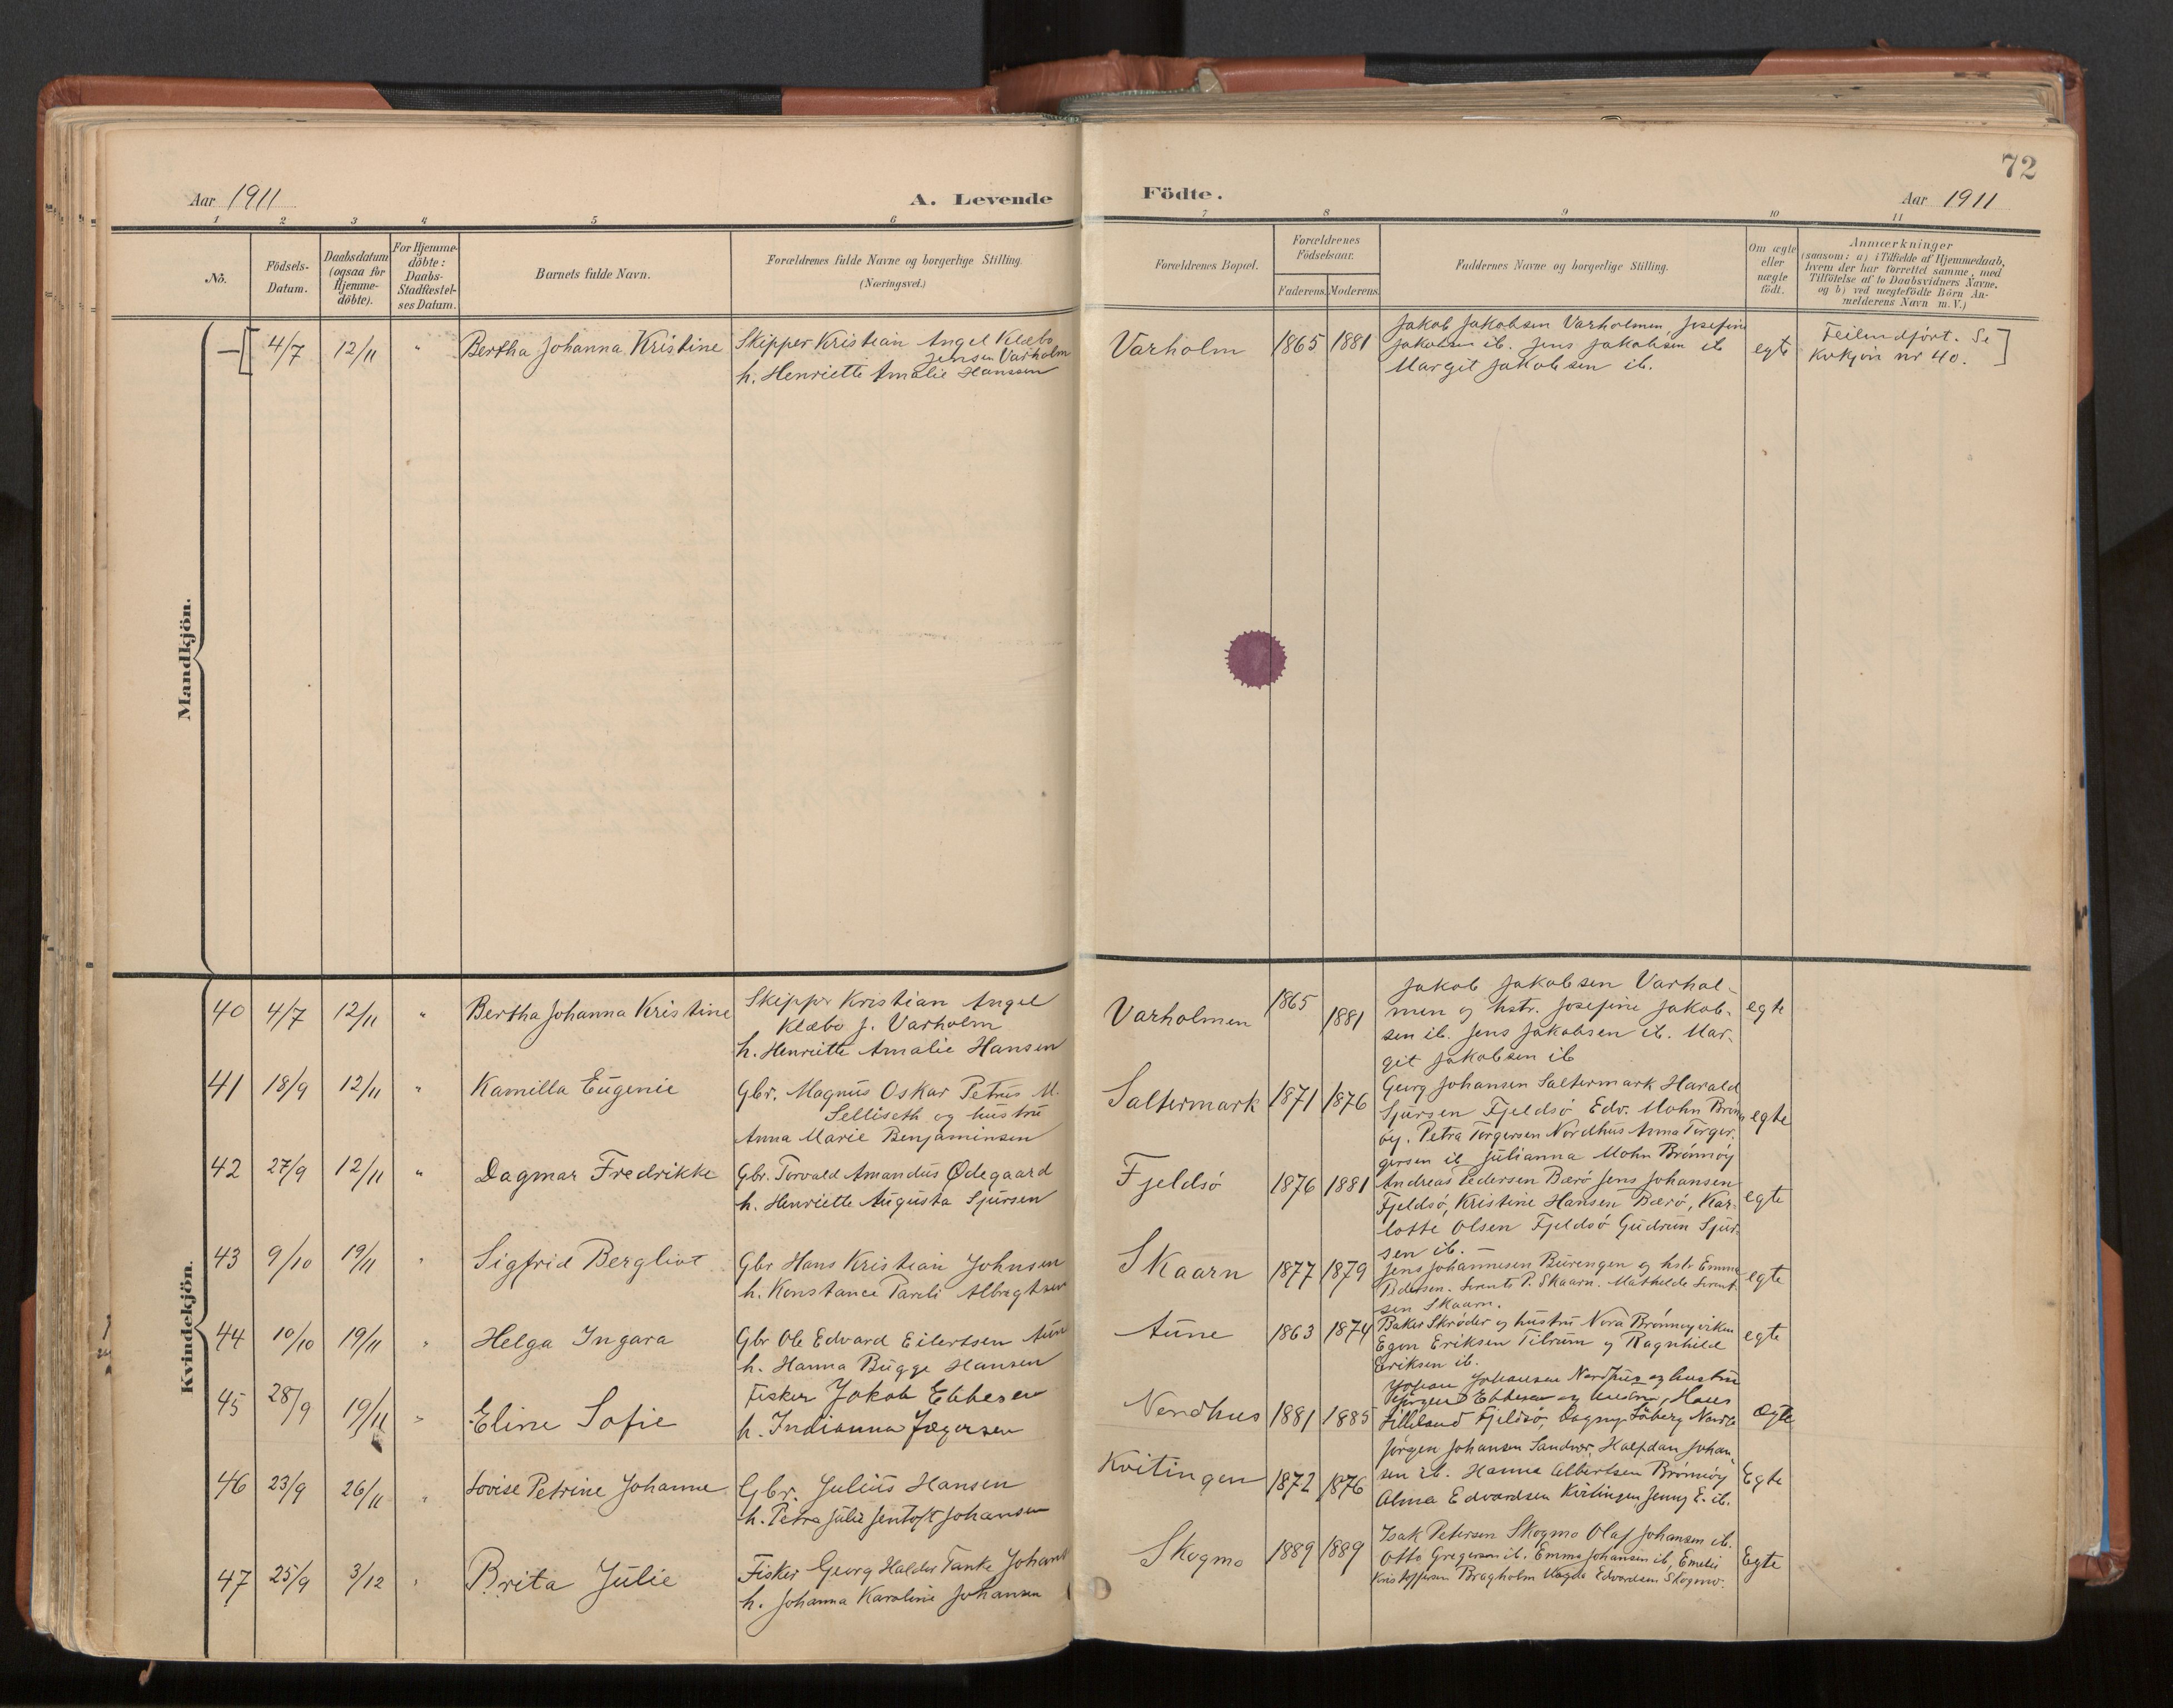 72
Aar 1911 A. Levende Födte. Aar 1911
1 2 3 4 5 6 7 8 9 10 11
No.
Födsels-
Datum.
Daabsdatum
(ogsaa for
Hjemme-
döbte).
For Hjemme-
döbte:
Daabs-
Stadfæstel-
ses Datum.
Barnets fulde Navn.
Forældrenes fulde Navne og borgerlige Stilling.
(Næringsvei.)
Forældrenes Bopæl.
Forældrenes
Födselsaar.
Faderens. Moderens.
Faddernes Navne og borgerlige Stilling.
Om ægte
eller
uægte
födt.
Anmærkninger
(saasom: a) i Tilfælde af Hjemmedaab,
hvem der har forrettet samme, med
Tilföielse af to Daabsvidners Navne.
og b) ved uægtefödte Börn An-
melderens Navn m. V.)
Mandkjön.
— [ 4/7 12/11 " Bertha Johanna Kristine
Skipper Kristian Angel Klæbo
Jensen Varholm
h. Henriette Amalie Hanssen
Varholm 1865 1881
Jakob Jakobsen Varholmen, Josefine
Jakobsen ib. Jens Jakobsen ib
Margit Jakobsen ib.
egte
Feilindført. Se
Kvkjøn nr 40. ]
Kvindekjön.
40 4/7 12/11 " Bertha Johanna Kristine
Skipper Kristian Angel
Klæbo J. Varholm
h. Henriette Amalie Hansen
Varholmen 1865 1881
Jakob Jakobsen Varhol-
men og hstr. Josefine Jakob-
sen ib. Jens Jakobsen ib. Mar-
git Jakobsen ib
egte
41 18/9 12/11 " Kamilla Eugenie
Gbr. Magnus Oskar Petrus M.
Selliseth og hustru
Anna Marie Benjaminsen
Saltermark 1871 1876
Georg Johansen Saltermark Harald
Sjursen Fjeldsö Edv. Mohn Brönn
öy. Petra Torgersen Nordhus Anna Torger.
gersen ib Julianna Mohn Brönnöy
egte
42 27/9 12/11 " Dagmar Fredrikke
Gbr. Torvald Amandus Ödegaard
h. Henriette Augusta Sjursen
Fjeldsö 1876 1881
Andreas Pedersen Bærö Jens Johansen
Fjeldsö, Kristine Hansen Bærö, Kar-
lotte Olsen Fjeldsö Gudrun Sjur-
sen ib. —
egte
43 9/10 19/11 " Sigfrid Bergliot
Gbr Hans Kristian Johnsen
h. Konstance Pareli Albregtsen
Skaarn 1877 1879
Jens Johannesen Burengen og hstr Emma
Pedersen. P. Skaarn. Mathilde
sen Skaarn.
egte
44 10/10 19/11 " Helga Ingara
Gbr Ole Edvard Eilertsen Aun
h. Hanna Bugge Hansen
Aune 1863 1874
Baker Skröder og hustru Nora Brönnöyviken
Egon Eriksen Tilrum og Ragnhild
Eriksen ib.
egte
45 28/9 19/11 " Eline Sofie
Fisker Jakob Ebbesen
h. Indianna Jægersen
Nordhus 1881 1885
Johan Johansen Nordhus og hustru
Jörgen Ebbesen og hustru, Hans
Lilleland Fjeldsö, Dagny Söberg Nordh
ægte
46 23/9 26/11 " Lovise Petrine Johanne
Gbr. Julius Hansen
h. Petra Julie Jentoft Johansen
Kvitingen 1872 1876
Jörgen Johansen Sandvær, Halfdan Johan-
sen ib. Hanna Albertsen Brönnöy
Alma Edvardsen Kvitingen Jenny E. ib.
Egte
47 25/9 3/12 " Brita Julie
Fisker Georg Haldor Tanke Johans
h. Johanna Karoline Johansen
Skogmo 1889 1889
Isak Petersen Skogmo Olaf Johansen ib.
Otto Gregersen ib. Emma Johansen ib, Emelie
Kristoffersen Bragholm Magda Edvardsen Skogmo.
Egte